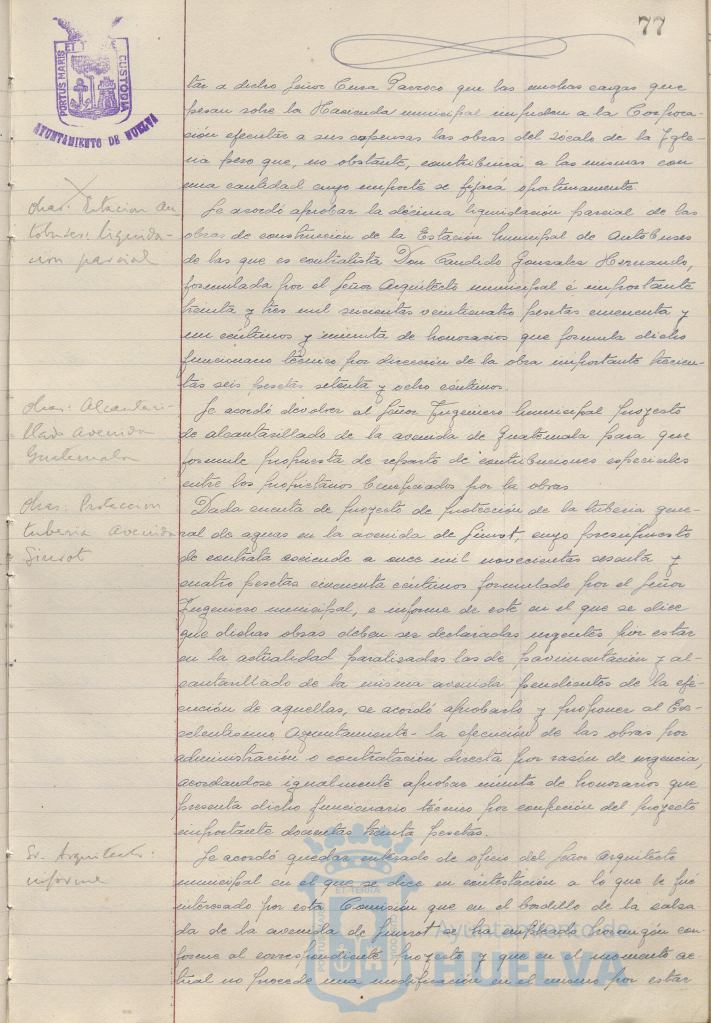 77
PORTUS MARIS ET TERRÆ CUSTODIA
AYUNTAMIENTO DE HUELVA
tar a dicho Señor Cura Párroco que las muchas cargas que
pesan sobre la Hacienda municipal impiden a la Corpora-
ción efectuar a sus expensas las obras del zócalo de la Igle-
sia pero que, no obstante, contribuirá a las mismas con
una cantidad cuyo importe se fijará oportunamente
Obras: Estacion Au
tobuses: liquida-
cion parcial
Se acordó aprobar la décima liquidación parcial de las
obras de construcción de la Estación Municipal de Autobuses
de las que es contratista Don Candido Gonzalez Hernando,
formulada por el Señor Arquitecto municipal e importante
treinta y tres mil seiscientas veinticuatro pesetas cincuenta y
un céntimos y minuta de honorarios que formula dicho
funcionario técnico por dirección de la obra importante trescien-
tas seis pesetas setenta y ocho céntimos.
Obras: Alcantari-
llado Avenida
Guatemala
Se acordó devolver al Señor Ingeniero Municipal proyecto
de alcantarillado de la avenida de Guatemala para que
formule propuesta de reparto de contribuciones especiales
entre los propietarios beneficiados por la obra.
Obras: Proteccion
tuberia Avenida
Siurot
Dada cuenta de proyecto de protección de la tuberia gene-
ral de aguas en la avenida de Siurot, cuyo presupuesto
de contrata asciende a once mil novecientas sesenta y
cuatro pesetas cincuenta céntimos formulado por el Señor
Ingeniero municipal, e informe de este en el que se dice
que dichas obras deben ser declaradas urgentes por estar
en la actualidad paralizadas las de pavimentación y al-
cantarillado de la misma avenida pendientes de la eje-
cución de aquellas, se acordó aprobarlo y proponer al Ex-
celentisimo Ayuntamiento la ejecución de las obras por
administración o contratación directa por razón de urgencia,
acordandose igualmente aprobar minuta de honorarios que
presenta dicho funcionario técnico por confección del proyecto
importante doscientas treinta pesetas.
Sr. Arquitecto:
informe
Se acordó quedar enterado de oficio del Señor Arquitecto
municipal en el que se dice en contestación a lo que le fué
interesado por esta Comisión que en el bordillo de la calza-
da de la avenida de Siurot se ha empleado hormigón con-
forme al correspondiente proyecto y que en el momento ac-
tual no procede una modificación en el mismo por estar
Ayuntamiento de
HUELVA